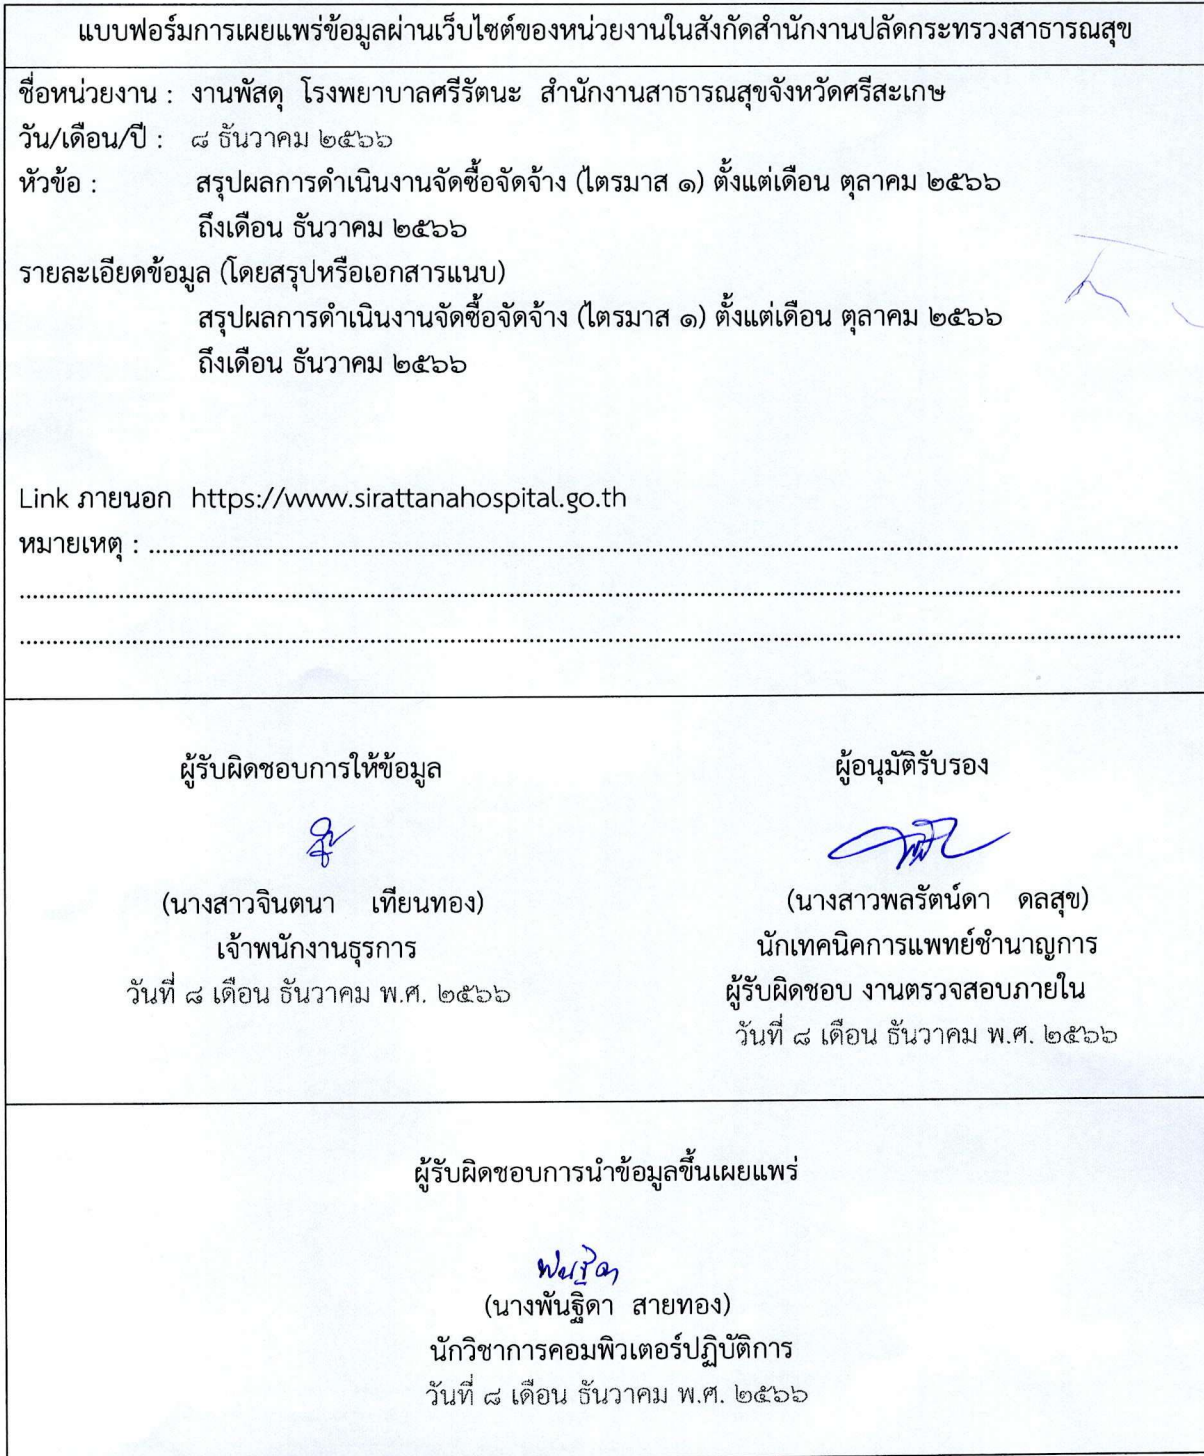 แบบฟอร์มการเผยแพร่ข้อมูลผ่านเว็บไซต์ของหน่วยงานในสังกัดสำนักงานปลัดกระทรวงสาธารณสุข
ชื่อหน่วยงาน : งานพัสดุ โรงพยาบาลศรีรัตนะ สำนักงานสาธารณสุขจังหวัดศรีสะเกษ
วัน/เดือน/ปี : ๘ ธันวาคม ๒๕๖๖
หัวข้อ : สรุปผลการดำเนินงานจัดซื้อจัดจ้าง (ไตรมาส ๑) ตั้งแต่เดือน ตุลาคม ๒๕๖๖
ถึงเดือน ธันวาคม ๒๕๖๖
รายละเอียดข้อมูล (โดยสรุปหรือเอกสารแนบ)
สรุปผลการดำเนินงานจัดซื้อจัดจ้าง (ไตรมาส ๑) ตั้งแต่เดือน ตุลาคม ๒๕๖๖
ถึงเดือน ธันวาคม ๒๕๖๖
Link ภายนอก https://www.sirattanahospital.go.th
หมายเหตุ : ........................................................................
........................................................................
........................................................................
ผู้รับผิดชอบการให้ข้อมูล
(นางสาวจินตนา เทียนทอง)
เจ้าพนักงานธุรการ
วันที่ ๘ เดือน ธันวาคม พ.ศ. ๒๕๖๖
ผู้อนุมัติรับรอง
(นางสาวพลรัตน์ดา ดลสุข)
นักเทคนิคการแพทย์ชำนาญการ
ผู้รับผิดชอบ งานตรวจสอบภายใน
วันที่ ๘ เดือน ธันวาคม พ.ศ. ๒๕๖๖
ผู้รับผิดชอบการนำข้อมูลขึ้นเผยแพร่
พันธิดา
(นางพันฐิดา สายทอง)
นักวิชาการคอมพิวเตอร์ปฏิบัติการ
วันที่ ๘ เดือน ธันวาคม พ.ศ. ๒๕๖๖